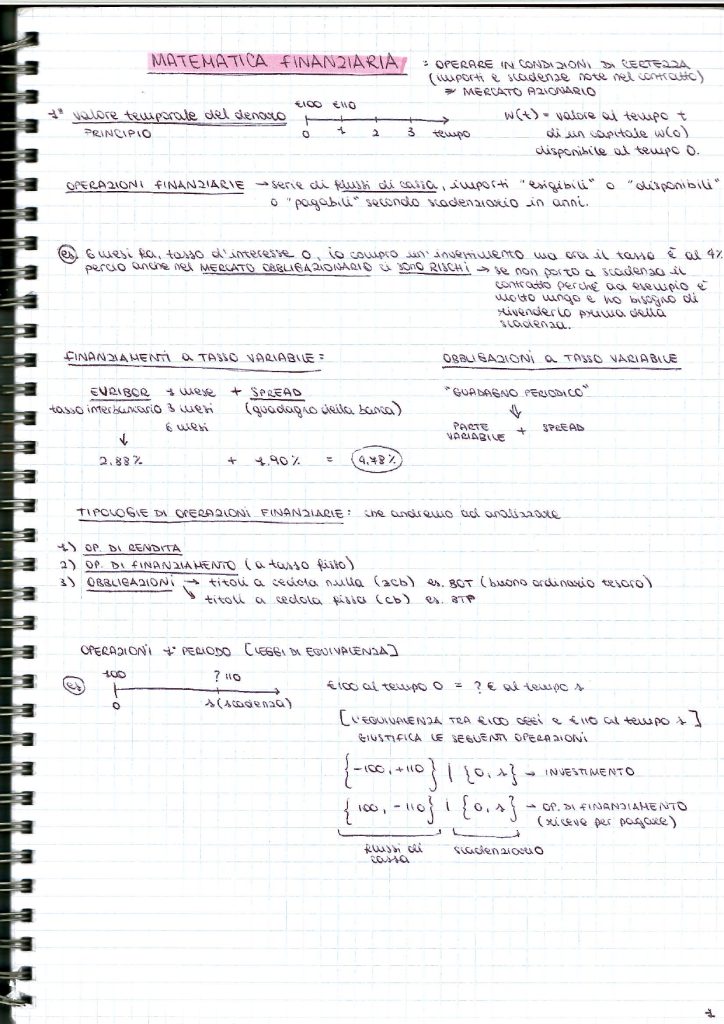 MATEMATICA FINANZIARIA = OPERARE IN CONDIZIONI DI CERTEZZA
(importi e scadenze note nel contratto)
≠ MERCATO AZIONARIO
€100 €110
1° valore temporale del denaro
PRINCIPIO
0 1 2 3 tempo
W(t) = valore al tempo t
di un capitale W(0)
disponibile al tempo 0.
OPERAZIONI FINANZIARIE → serie di flussi di cassa, importi "esigibili" o "disponibili"
o "pagabili" secondo scadenziario in anni.
es 6 mesi fa, tasso d'interesse 0, io compro un'investimento ma ora il tasso è al 4%
perciò anche nel MERCATO OBBLIGAZIONARIO ci SONO RISCHI → se non porto a scadenza il
contratto perché ad esempio è
molto lungo e ho bisogno di
rivenderlo prima della
scadenza.
FINANZIAMENTI a TASSO VARIABILE =
EURIBOR 1 mese + SPREAD
tasso interbancario 3 mesi (guadagno della banca)
6 mesi
↓
2.88% + 1.90% = 4.78%
OBBLIGAZIONI a TASSO VARIABILE
"GUADAGNO PERIODICO"
⇓
PARTE VARIABILE + SPREAD
TIPOLOGIE DI OPERAZIONI FINANZIARIE: che andremo ad analizzare
1) OP. DI RENDITA
2) OP. DI FINANZIAMENTO (a tasso fisso)
3) OBBLIGAZIONI → titoli a cedola nulla (zcb) es. BOT (buono ordinario tesoro)
↘ titoli a cedola fissa (cb) es. BTP
OPERAZIONI 1° PERIODO [LEGGI DI EQUIVALENZA]
es 100 ? 110
0 s (scadenza)
€100 al tempo 0 = ? € al tempo s
[L'EQUIVALENZA TRA €100 OGGI e €110 al tempo s]
GIUSTIFICA LE SEGUENTI OPERAZIONI
{-100, +110} | {0, s} → INVESTIMENTO
{100, -110} | {0, s} → OP. DI FINANZIAMENTO
(riceve per pagare)
flussi di cassa scadenziario
1